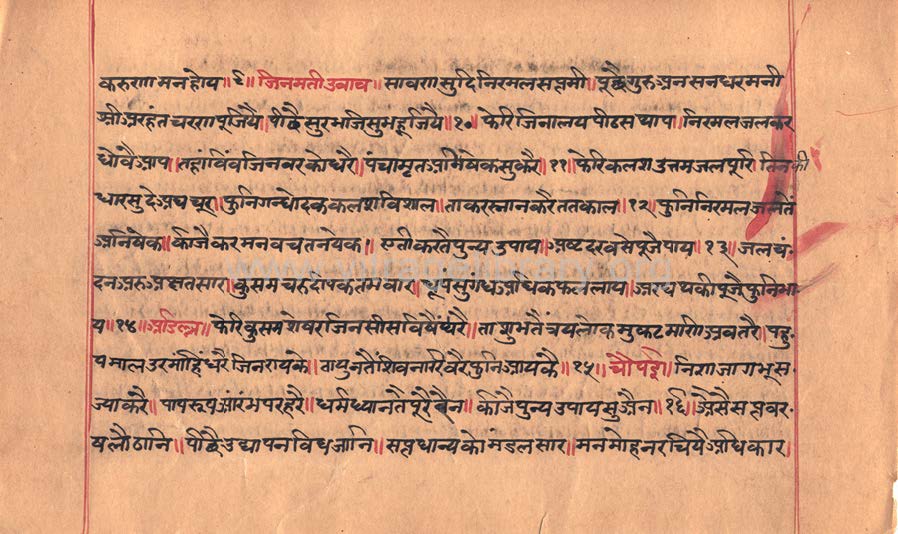 करुणा मन होय ॥ ९ ॥ जिनमती उवाच ॥ सावण सुदि निरमल सप्तमी ॥ पूछै गुरु प्रसन धरमनी
श्री अरहंत चरण पूजियै ॥ पीछै सुरभ जिसु भहूजियै ॥ १० ॥ फेरि जिनालय पीठ सथाप ॥ निरमल जल कर
धोवै आप ॥ तहां बिंब जिनवर को धरै ॥ पंचामृत अभिषेक सु करै ॥ ११ ॥ फेरि कलश उत्तम जल पूरि ॥ तिन की
धार सु दे अघ चूर ॥ फुनि गन्धोदक कलश विशाल ॥ ता कर स्नान करै ततकाल ॥ १२ ॥ फुनि निरमल जल तें
अभिषेक ॥ कीजै कर मन वच तन येक ॥ एती करतै पुन्य उपाय ॥ अष्ट दरव से पूजै पाय ॥ १३ ॥ जल चं
दन अरु अक्षत सार ॥ कुसम चरु दीपक तम वार ॥ धूप सुगंध अधिक फल लाय ॥ अरघ थकी पूजै फुनि भा
य ॥ १४ ॥ अडिल्ल ॥ फेरि कुसम शेषर जिन सीस विषैं धरै ॥ ता शुभतैं त्रय लोक मुकट मणि अवतरै ॥ पहु
प माल उर मांहिं धरै जिनराय के ॥ ता पुनतैं शिव नारि वरै फुनि आयकै ॥ १५ ॥ चौपई ॥ निश जागे भू स
ज्या करै ॥ पाप रूप आरंभ परहरै ॥ धर्म ध्यान तै पूरै बैन ॥ कीजै पुन्य उपाय सु जैन ॥ १६ ॥ अैसै सप्त वर
ष लौ ठानि ॥ पीछै उद्यापन विध जानि ॥ सप्त धान्य को मंडल सार ॥ मन मोहन रचियै अधिकार ॥